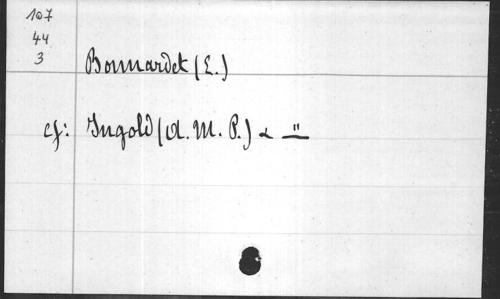 107
44
3
Bonnardet (E.)
cf: Ingold (A. M. P.) & — " —